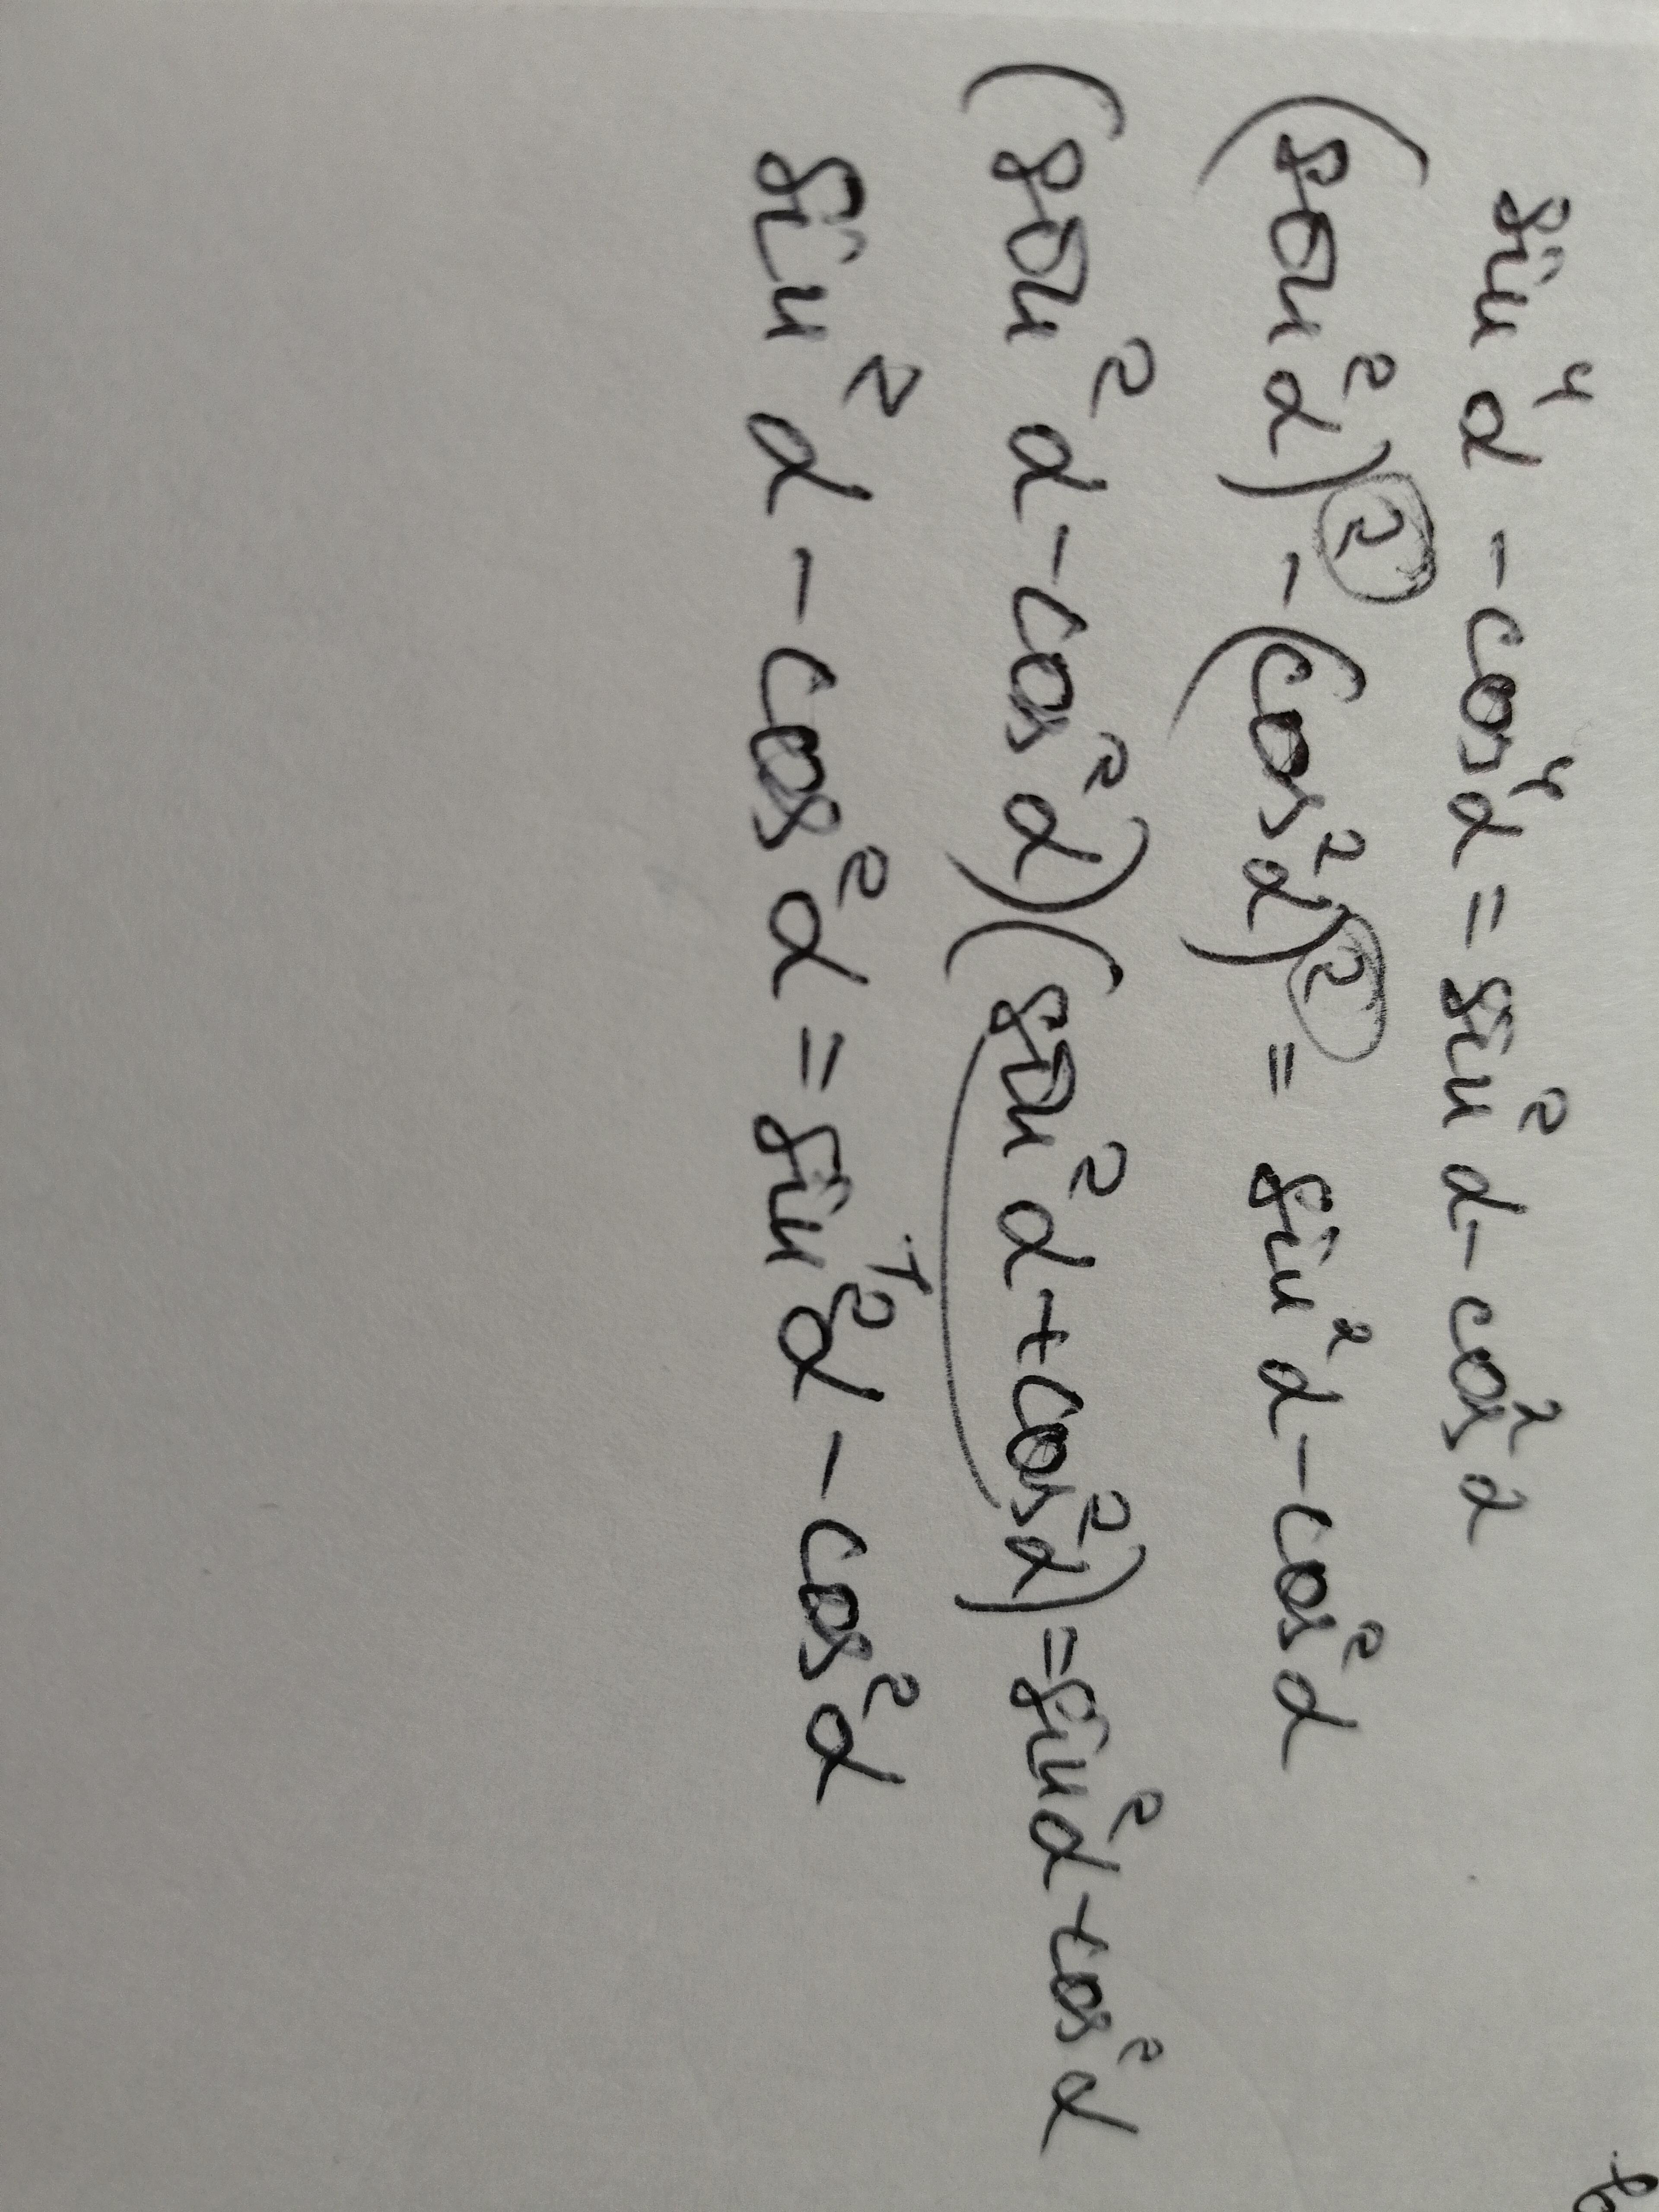 sin⁴α - cos⁴α = sin²α - cos²α
(sin²α)² - (cos²α)² = sin²α - cos²α
(sin²α - cos²α)(sin²α + cos²α) = sin²α - cos²α
1
sin²α - cos²α = sin²α - cos²α